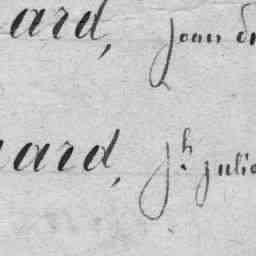 ard, jean
ard, jh julie